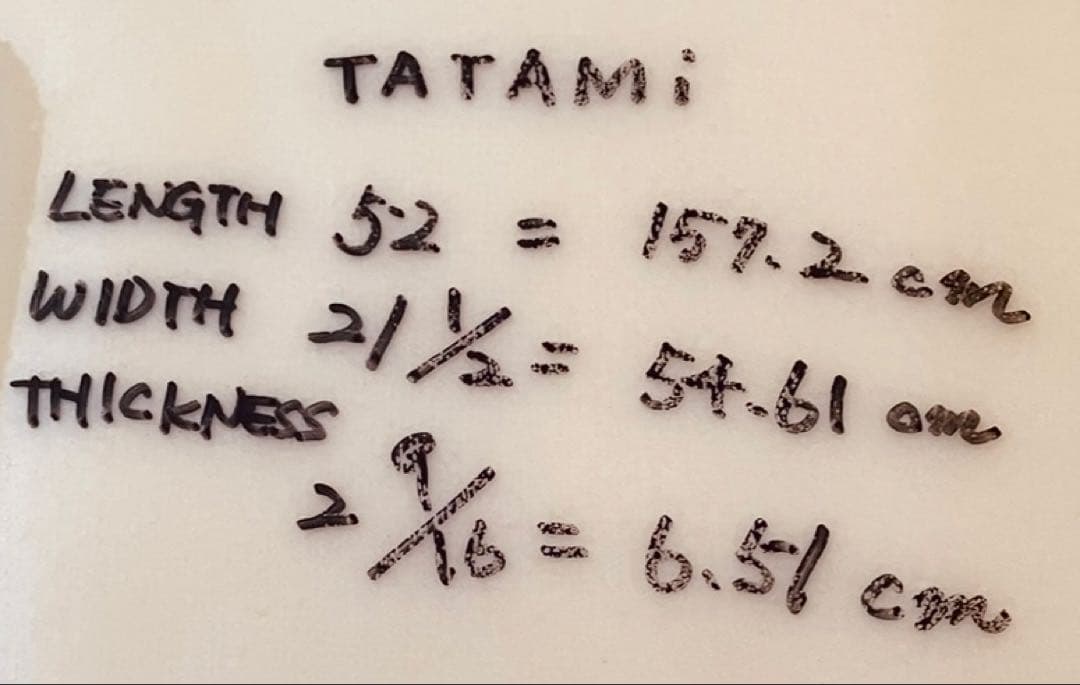 TATAMi
LENGTH 52 = 157.2 cm
WIDTH 21 1/2 = 54.61 cm
THICKNESS
2 9/16 = 6.51 cm